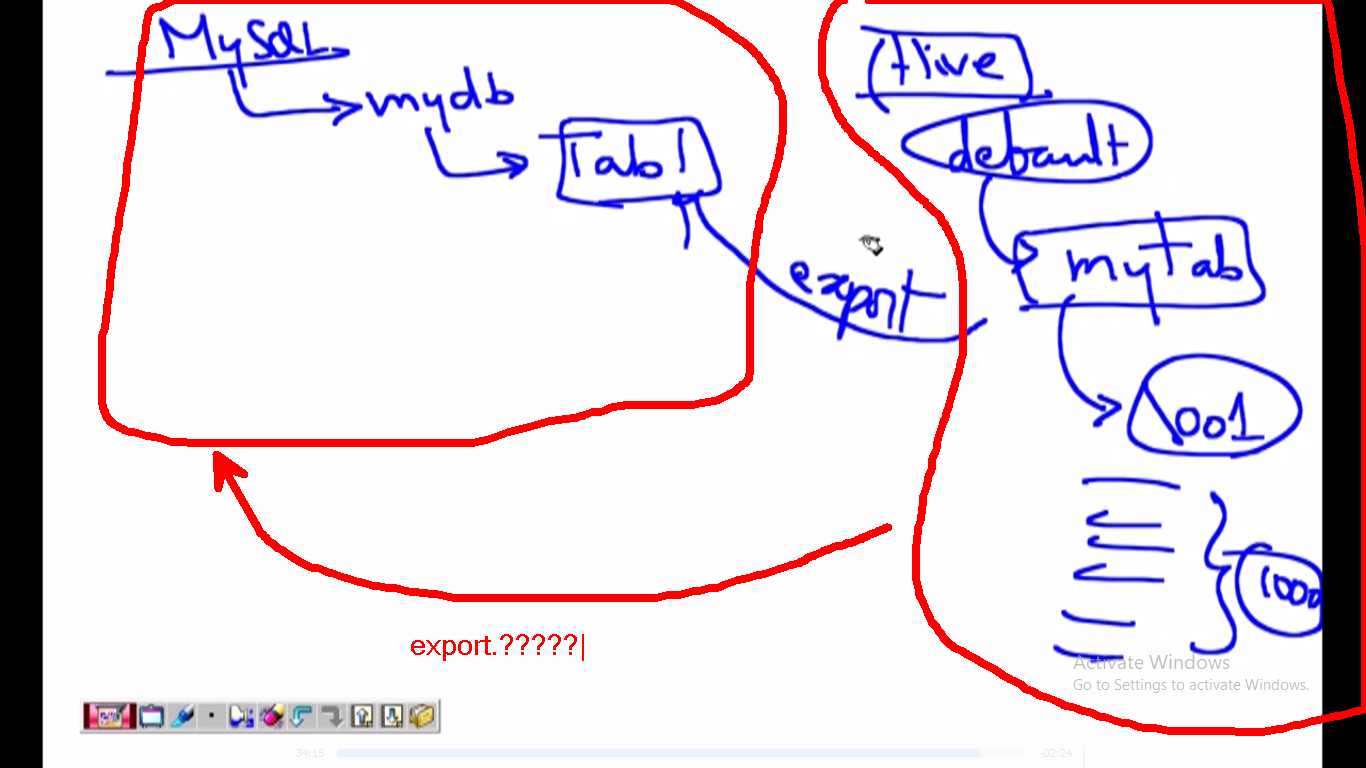 MySQL
mydb
Tab1
Hive
default
myTab
export
001
1000
export.?????|
Activate Windows
Go to Settings to activate Windows.
34:15
-02:24